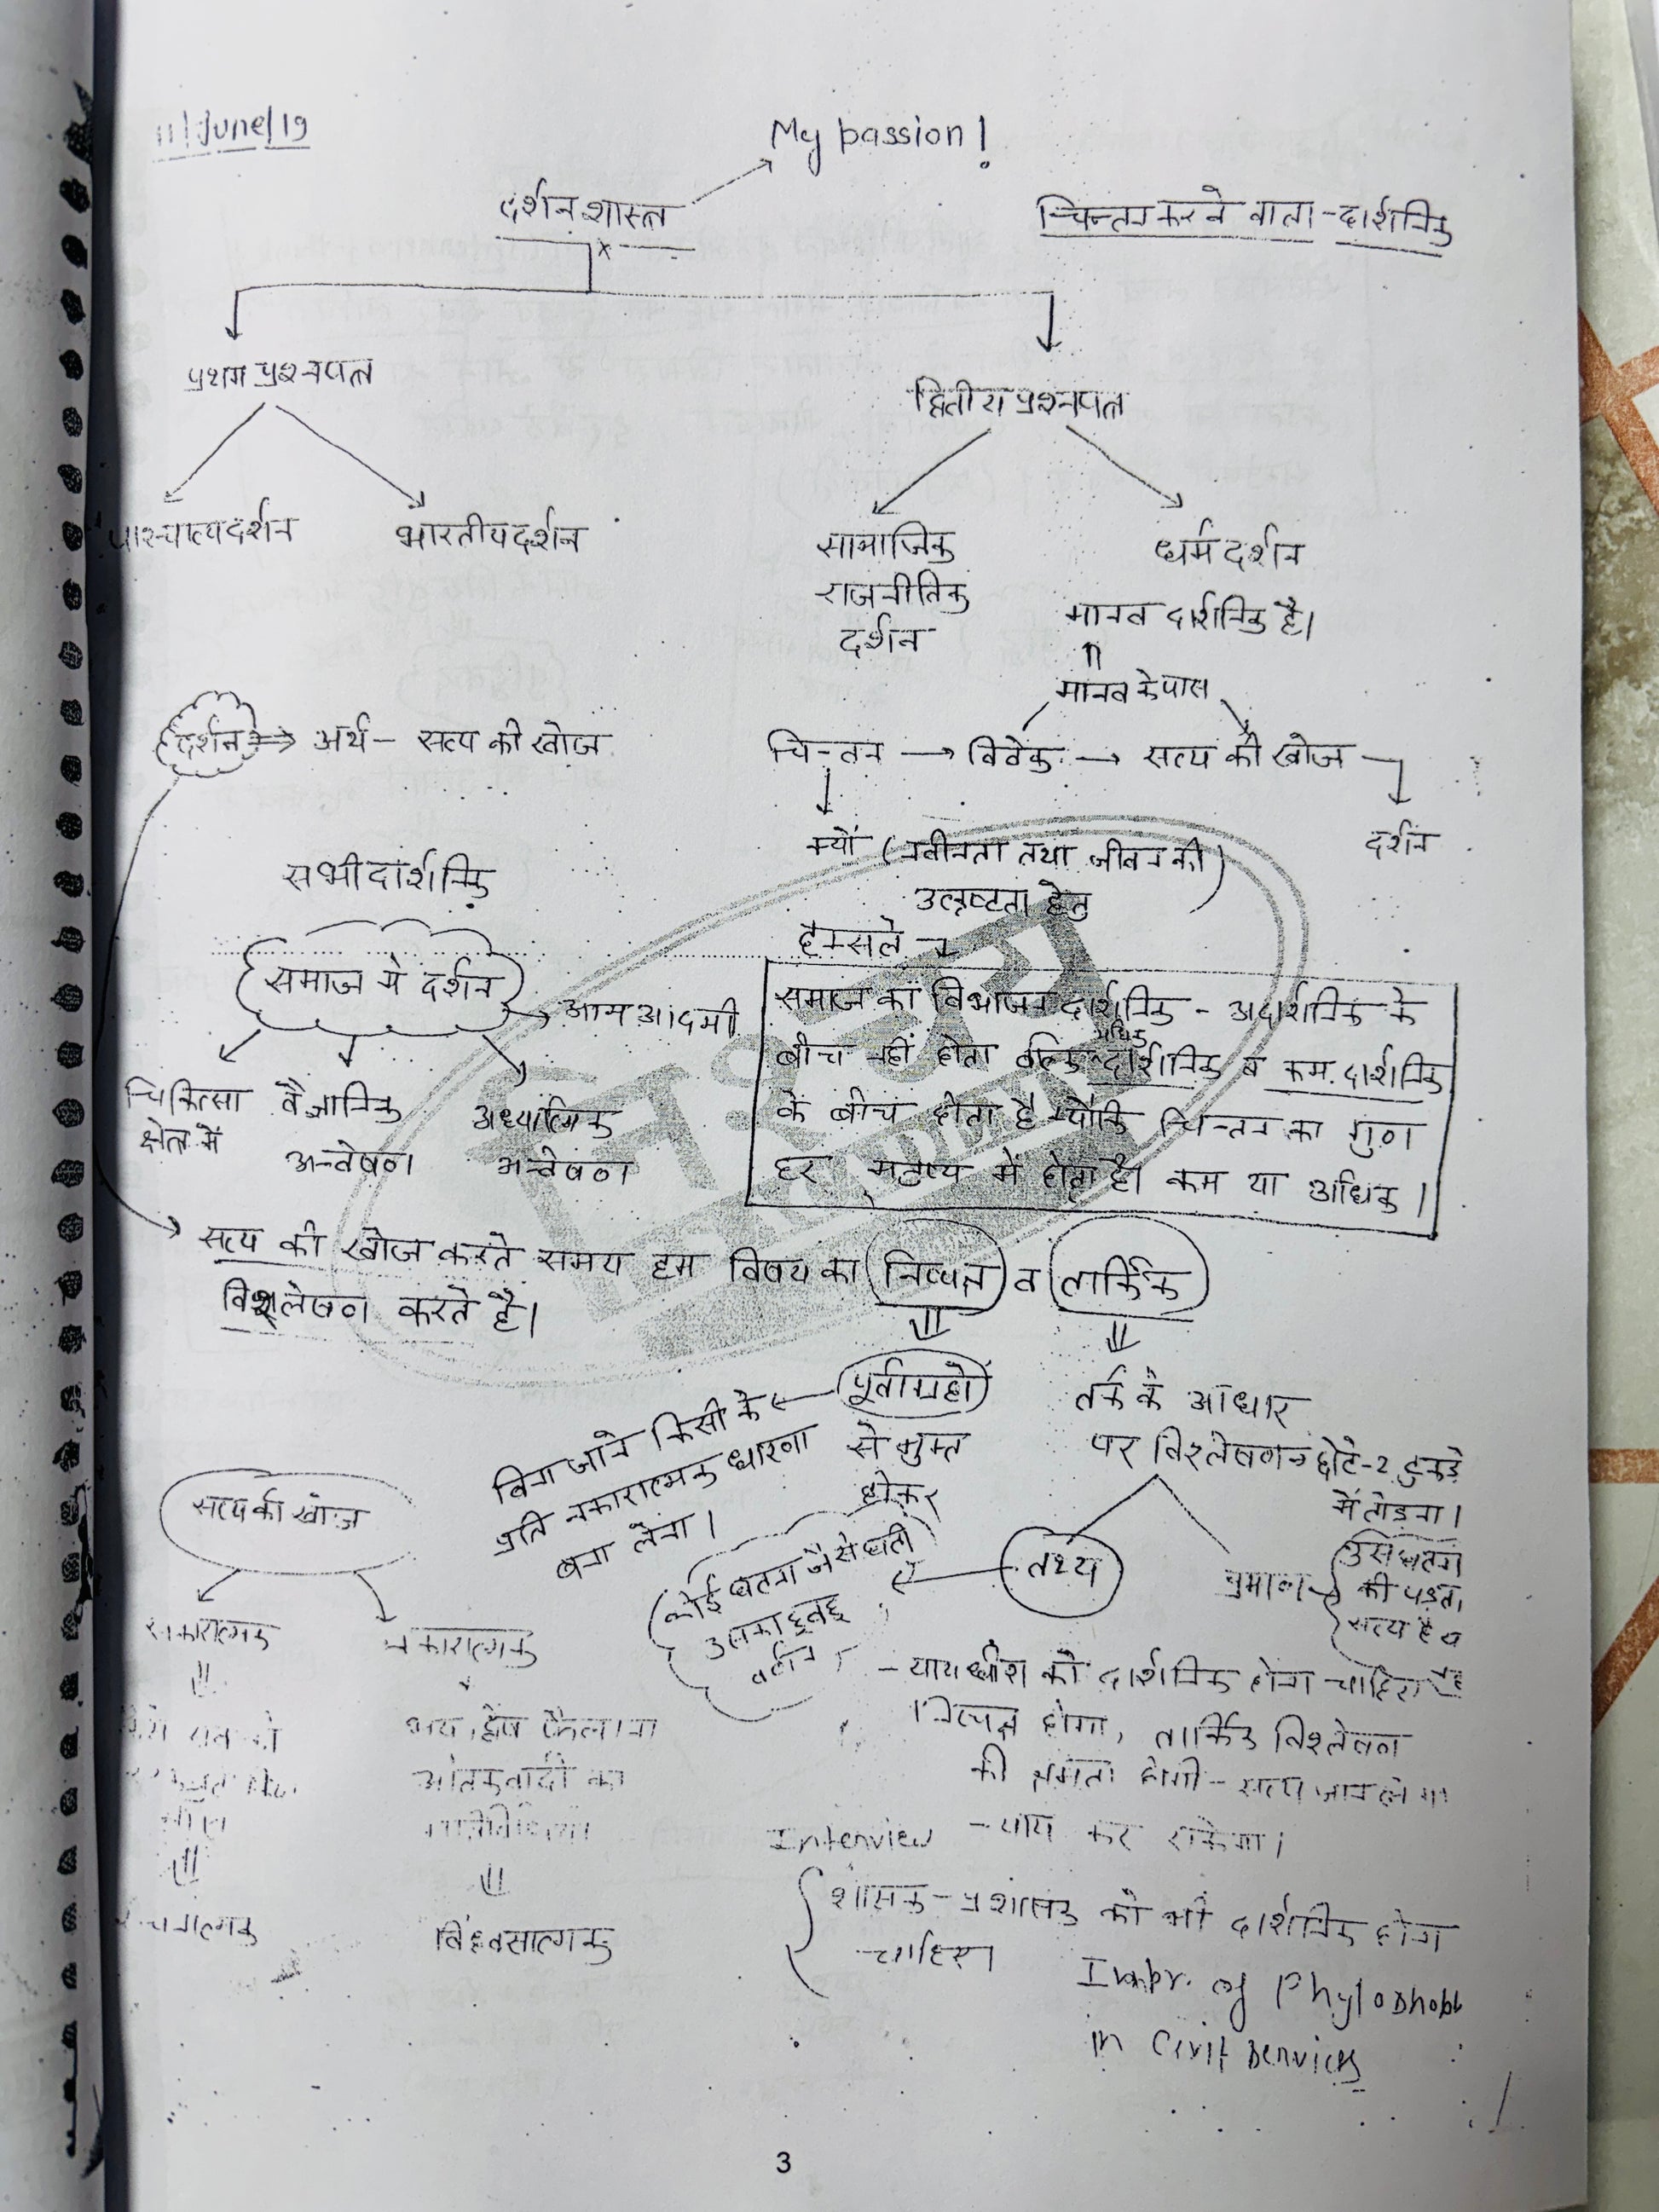 11/June/19
My passion!
दर्शन शास्त्र
चिन्तन करने वाला - दार्शनिक
प्रथम प्रश्नपत्र
द्वितीय प्रश्नपत्र
पाश्चात्य दर्शन
भारतीय दर्शन
सामाजिक
राजनीतिक
दर्शन
धर्म दर्शन
मानव दार्शनिक है।
मानव के पास
दर्शन ⇒ अर्थ - सत्य की खोज
चिन्तन → विवेक → सत्य की खोज
दर्शन
क्यों (नवीनता तथा जीवन की
उत्कृष्टता हेतु)
सभी दार्शनिक
समाज में दर्शन
आम आदमी
चिकित्सा
क्षेत्र में
वैज्ञानिक
अन्वेषण
अध्यात्मिक
अन्वेषण
हक्सले
समाज का विभाजन दार्शनिक - अदार्शनिक के
बीच नहीं होता बल्कि अधिक दार्शनिक व कम दार्शनिक
के बीच होता है क्योंकि चिन्तन का गुण
हर मनुष्य में होता है। कम या अधिक।
सत्य की खोज करते समय हम विषय का निष्पक्ष व तार्किक
विश्लेषण करते है।
पूर्वाग्रहों
से मुक्त
होकर
बिना जाने किसी के
प्रति नकारात्मक धारणा
बना लेना।
तर्क के आधार
पर विश्लेषण → छोटे-2 टुकडे
में तोड़ना।
तथ्य
कोई घटना जैसे घटी
उसका हूबहू
वर्णन
प्रमाण
उस घटना
की
सत्य है व
सत्य की खोज
सकारात्मक
नकारात्मक
भय, द्वेष फैलाना
आतंकवादी का
विध्वंसात्मक
न्यायधीश को दार्शनिक होना चाहिए
निष्पक्ष होगा, तार्किक विश्लेषण
की क्षमता होगी - सत्य जान लेगा
Interview न्याय कर सकेगा।
शासक - प्रशासक को भी दार्शनिक होना
चाहिए।
in Civil Services
3